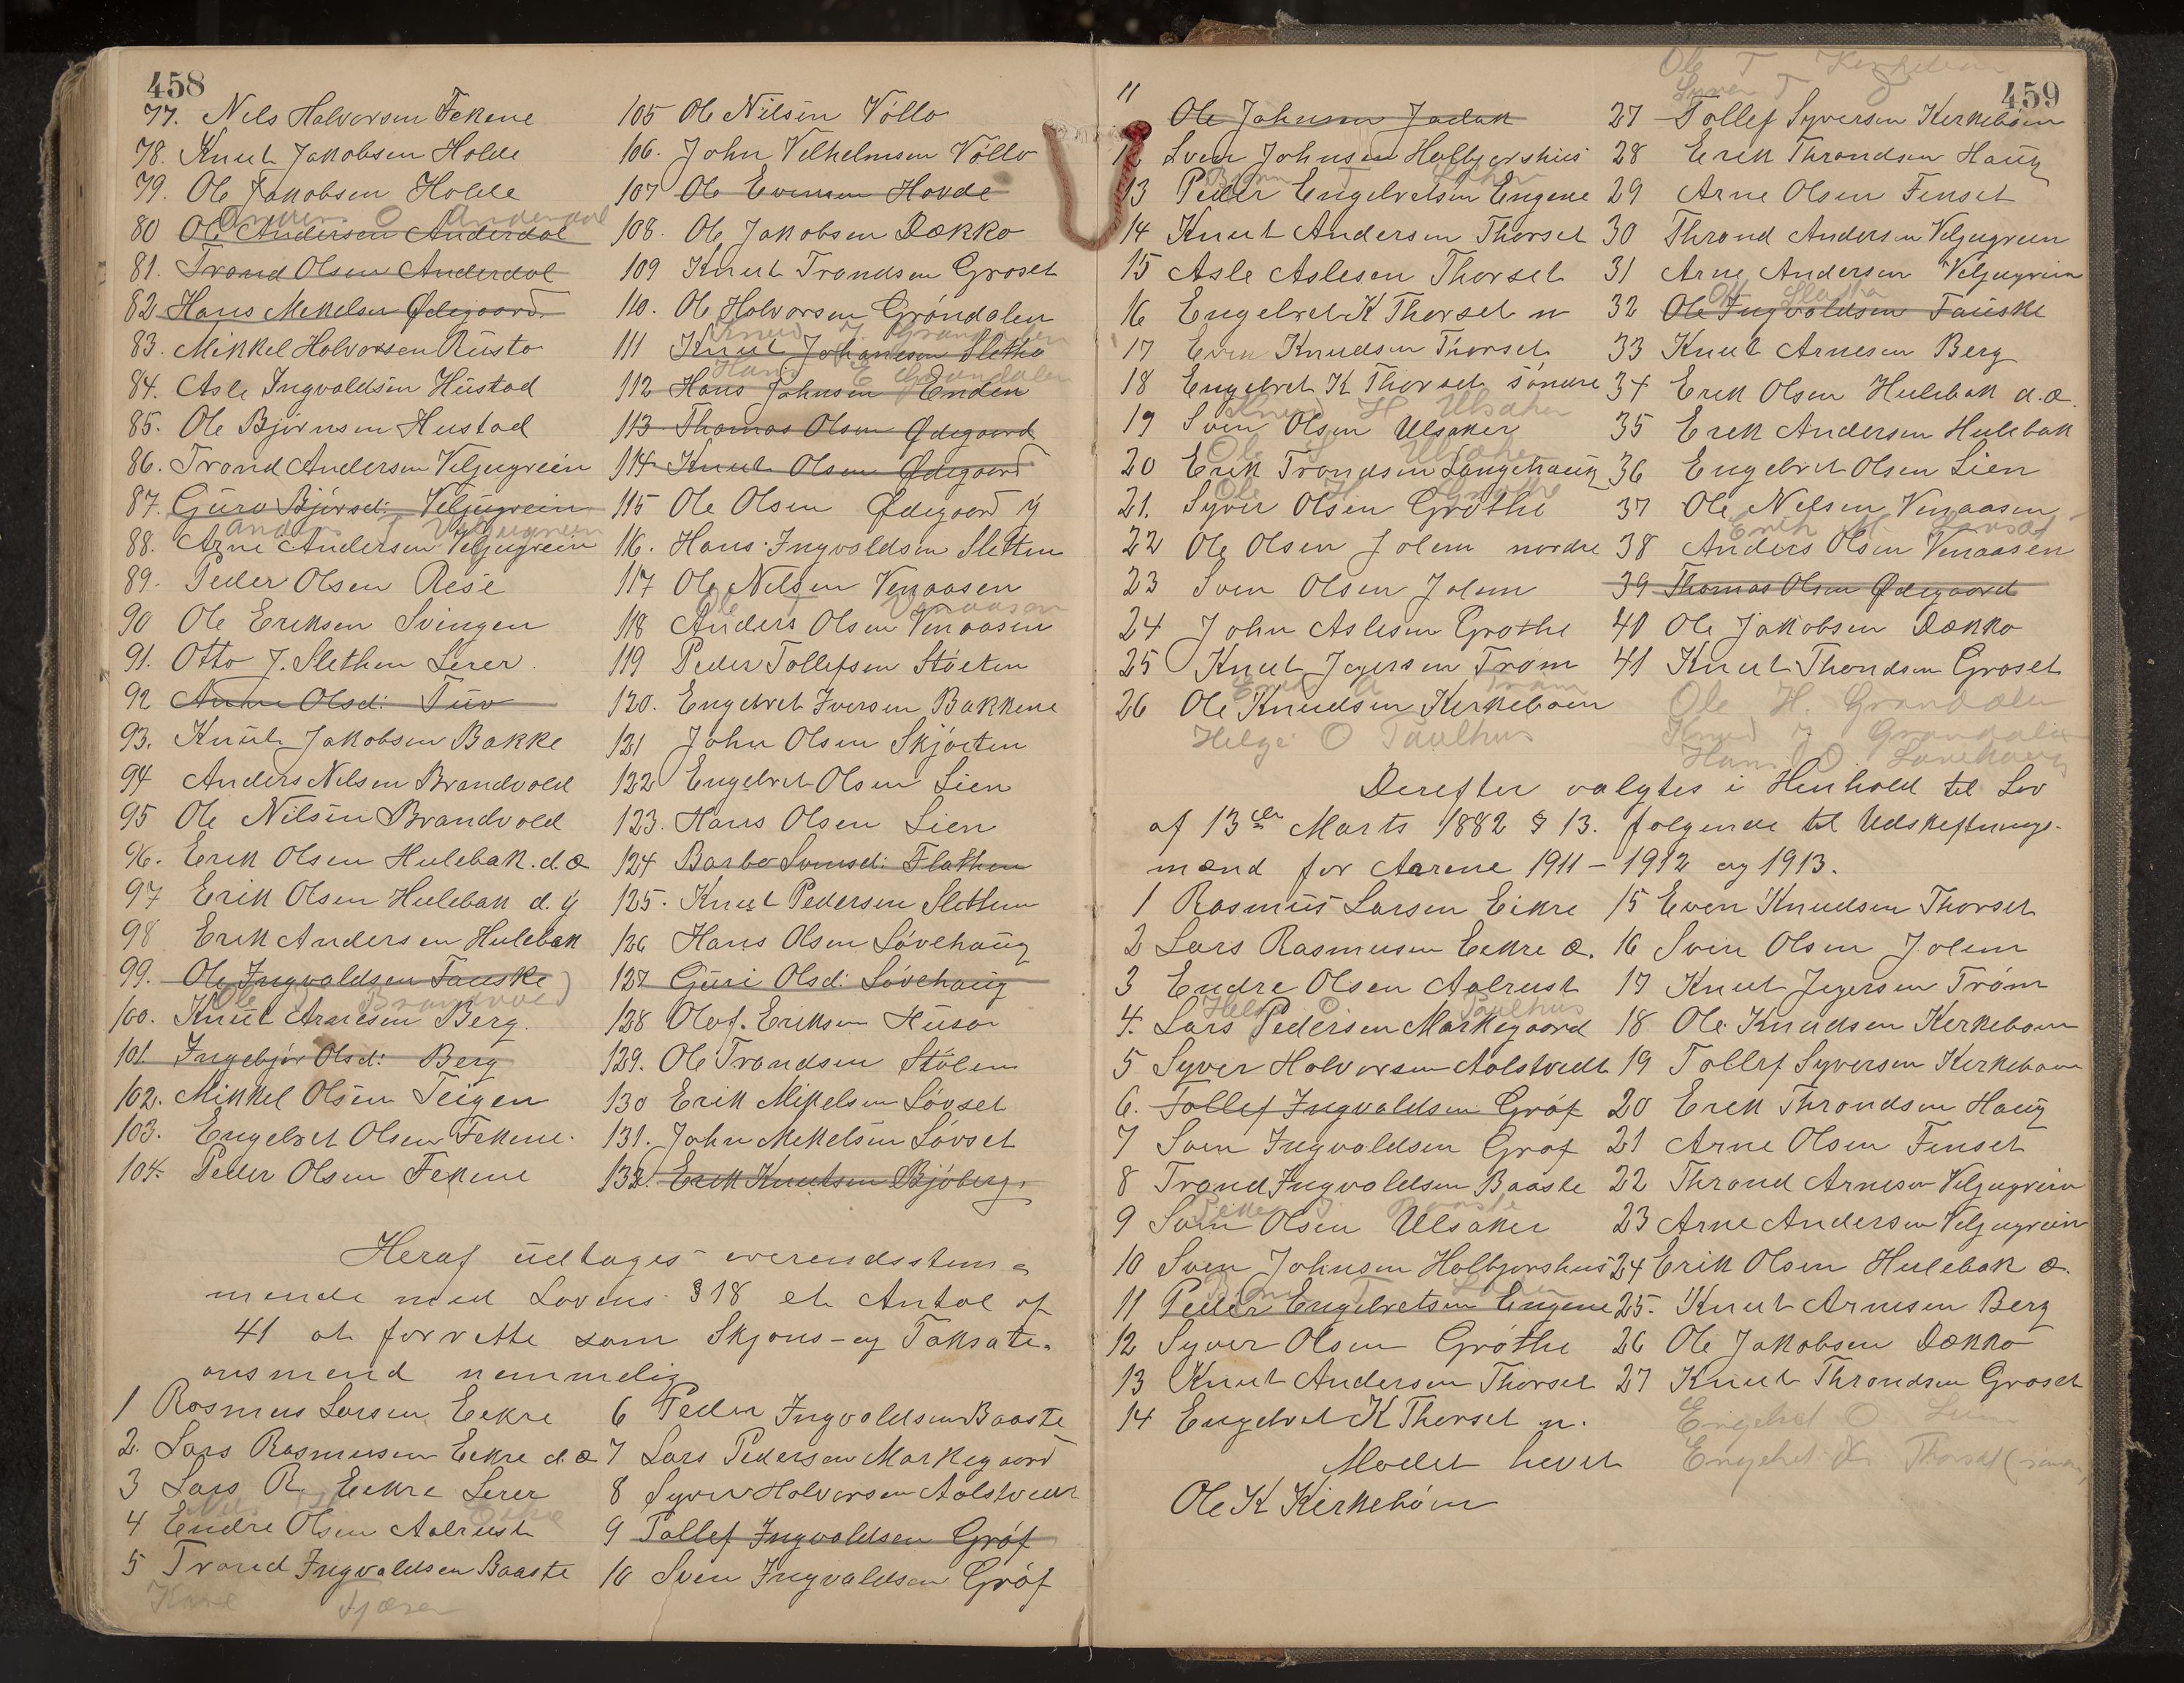 458
77. Nels Halvorsen Fekene
78. Knut Jakobsen Holde
79. Ole Jakobsen Holde
Anders O Anderdal
80 Ole Andersen Anderdal
81. Trond Olsen Anderdal
82 Hans Mekelsen Ødegaard
83. Mikkel Halvorsen Rusto
84. Asle Ingvaldsen Hustad
85. Ole Bjørnsen Hustad
86. Trond Andersen Veljugrein
87. Guro Bjørsd: Veljugrein
Anders T Veljugrein
88. Arne Andersen Veljugrein
89. Peder Olsen Rese
90 Ole Eriksen Svingen
91. Otto J. Slethen Lerer.
92 Anne Olsd: Tuv
93. Knut Jakobsen Bakke
94 Anders Nilsen Brandvold
95 Ole Nilsen Brandvold
96. Erik Olsen Hulebak. d. æ
97 Erik Olsen Hulebak d. y
98 Erik Andersen Hulebak
99. Ole Ingvaldsen Fauske
Ole Brandvold
100. Knut Arnesen Berg.
101. Ingebjør Olsd: Berg
102. Mikkel Olsen Teigen
103. Engebret Olsen Fekene.
104. Peder Olsen Fekene
105 Ole Nilsen Vøllo
106. John Velhelmsen Vøllo
107 Ole Evensen Hovde
108. Ole Jakobsen Dækko
109 Knut Trondsen Groset
110. Ole Halvorsen Grøndalen
Knud J. Grøndalen
111 Knut Johannesen Sletto
Hans E Grøndalen
112 Hans Johnsen Enden
113 Thomas Olsen Ødegaard
114 Knut Olsen Ødegaard
115 Ole Olsen Ødegaard y
116. Hans Ingvaldsen Sletten
117 Ole Nelsen Venaasen
Ole T Venaasen
118 Anders Olsen Venaasen
119 Peder Tollefsen Støeten
120. Engebret Iversen Bakkene
121 John Olsen Skjøeten
122 Engebret Olsen Lien
123. Hans Olsen Lien
124 Barbo Svensd: Flathen
125. Knut Pedersen Slethen
126 Hans Olsen Løvehaug
127 Guri Olsd: Løvehaug
128 Olof. Eriksen Huso
129. Ole Trondsen Stølen
130 Erik Mikelsen Løvset
131. John Mekelsen Løvset
132. Erik Knutsen Bjøberg.
Heraf udtages overendsstem-
mende med Lovens § 18 et Antal af
41 at forrette som Skjøns- og Taksati-
onsmend nemmelig
1 Rasmus Larsen Eikre
2. Lars Rasmusen Eekre d. æ
3 Lars R. Eekre Lerer
4 Endre Olsen Aalrust
5 Trond Ingvaldsen Baaste
6 Peder Ingvaldsen Baaste
7 Lars Pedersen Markegaard
8 Syver Halvorsen Aalstvedt
9 Tollef Ingvaldsen Grøf
10 Sven Ingvaldsen Grøf
459
11 Ole Johnsen Jadak
12 Sven Johnsen Holbjørshus
13 Peder Engebretsen Engene
14 Knut Andersen Thorset
15 Asle Aslesen Thorset
16 Engebret K Thorset n
17 Even Knudsen Thorset
18 Engebret K Thorset søndre
Knud H Ulsaker
19 Sven Olsen Ulsaker
Ole S Ulsaker
20 Erik Trondsen Langehaug
Ole H Grøthe
21. Syver Olsen Grøthe
22 Ole Olsen Jolem nordre
23 Sven Olsen Jolem
24 John Aslesen Grøthe
25 Knut Jegersen Trøm
26 Ole Knudsen Kerkebøen
Helge O Paulhus
Ole T Kerkebøen
Syver T
27 Tollef Syversen Kerkebøen
28 Erik Throndsen Haug
29 Arne Olsen Finset
30 Thrond Andersen Veljugrein
31 Arne Andersen Veljugrein
32 Ole Ingvaldsen Fauske
33 Knut Arnesen Berg
34 Erik Olsen Hulebak d. æ.
35 Erik Andersen Hulebak
36 Engebret Olsen Lien
37 Ole Nelsen Venaasen
Erik M. Løvset
38 Anders Olsen Venaasen
39 Thomas Olsen Ødegaard
40 Ole Jakobsen Dækko
41 Knut Thondsen Groset
Ole H. Grøndalen
Knud J Grøndalen
Hans O Løvehaug
Derefter valgtes i Henhold til Lov
af 13de Marts 1882 § 13. følgende til Udskiftnings-
mænd for Aarene 1911 – 1912 og 1913.
1 Rasmus Larsen Eikre
2 Lars Rasmusen Eekre æ.
3 Endre Olsen Aalrust
Helge O Paulhus
4. Lars Pedersen Markegaard
5 Syver Halvorsen Aalstvedt
6. Tollef Ingvaldsen Grøf
7 Sven Ingvaldsen Grøf
8 Trond Ingvaldsen Baaste
Peder I. Baaste
9 Sven Olsen Ulsaker
10 Sven Johnsen Holbjørshus
11 Peder Engebretsen Engene
12 Syver Olsen Grøthe
13 Knut Andersen Thorset
14 Engebret K Thorset n.
15 Even Knudsen Thorset
16 Sven Olsen Jolem
17 Knut Jegersen Trøm
18 Ole Knudsen Kerkebøen
19 Tollef Syversen Kerkebøen
20 Erik Throndsen Haug
21 Arne Olsen Finset
22 Thrond Arnesen Veljugrein
23 Arne Andersen Veljugrein
24 Erik Olsen Hulebak æ.
25. Knut Arnesen Berg
26 Ole Jakobsen Dækko
27 Knut Throndsen Groset
Engebret O Lien
Engebret K Thorset
Mødet hevet
Ole K Kirkebøen